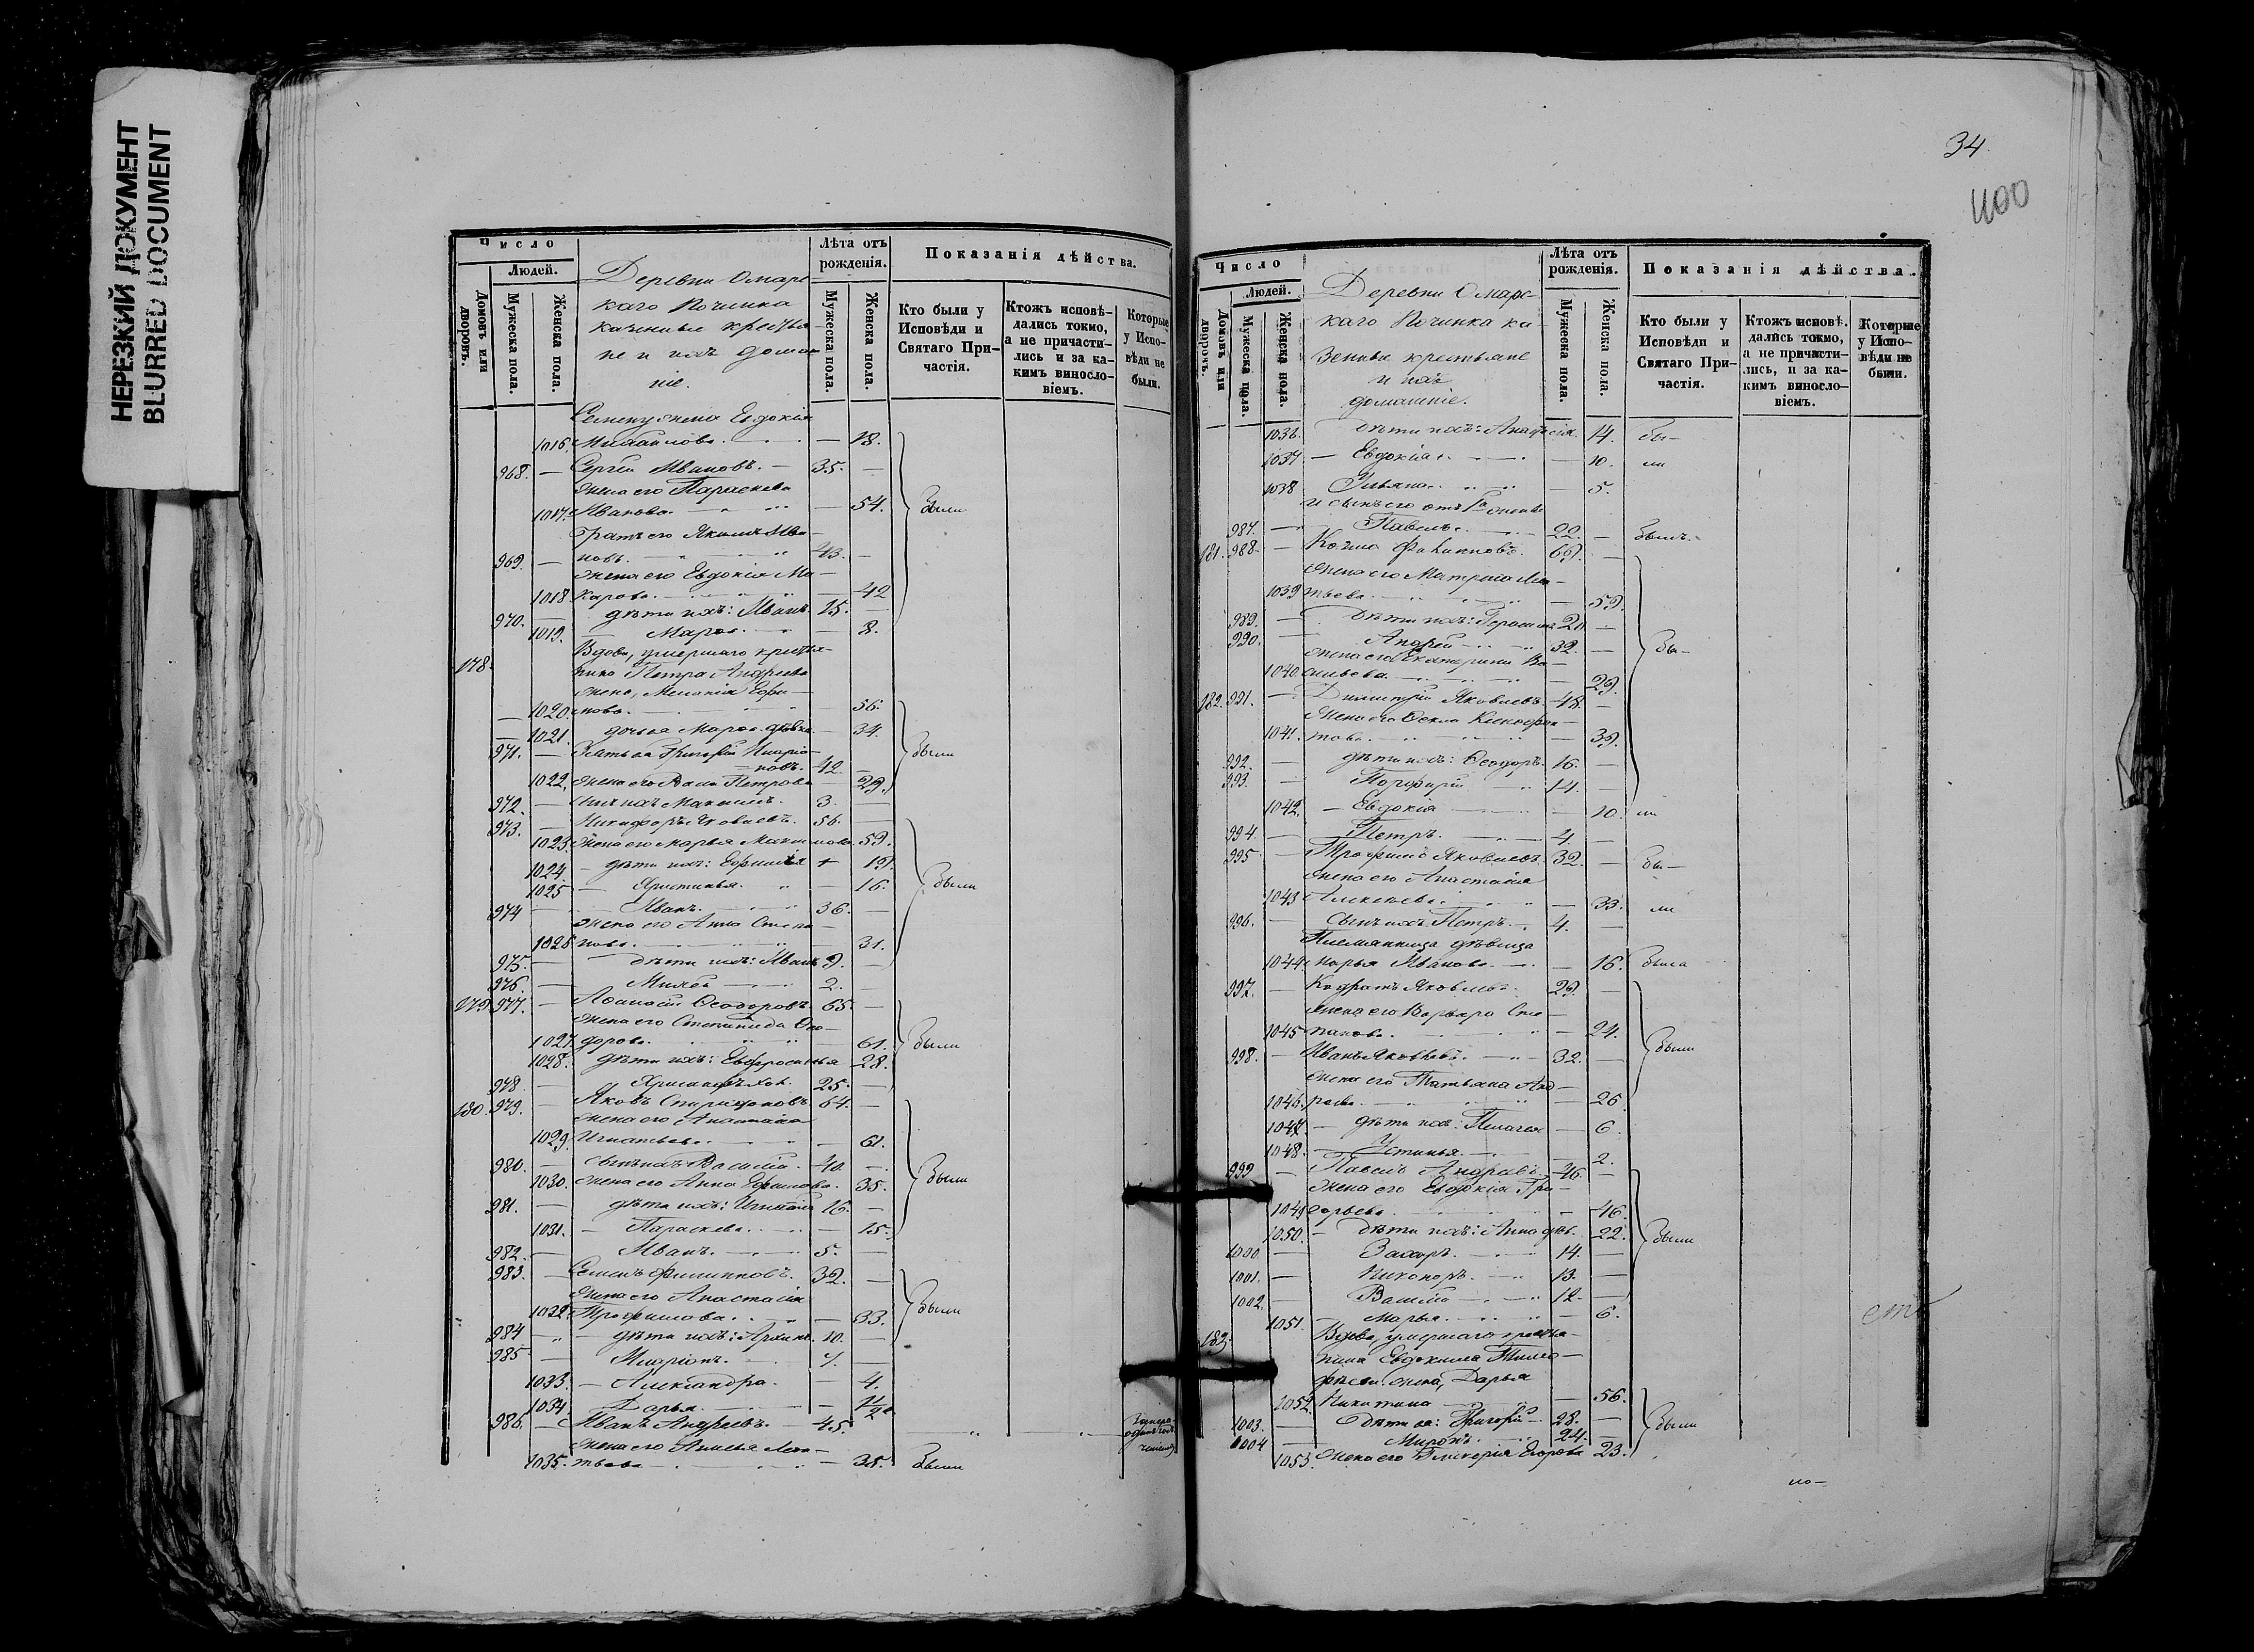 НЕРЕЗКИЙ ДОКУМЕНТ
BLURRED DOCUMENT
Число
Людей.
Домовъ или дворовъ.
Мужеска пола.
Женска пола.
Деревни Омарс
каго Починка
казенные крестья-
не и ихъ домаш
ніе.
Лѣта отъ рожденія.
Мужеска пола.
Женска пола.
Показанія дѣйства.
Кто были у Исповѣди и Святаго При-частія.
Ктожъ исповѣ-дались токмо, а не причасти-лись и за ка-кимъ винословіемъ.
Которые у Испо-вѣди не были.
Семену жена Евдокія
1016. Михаилова. — 18.
968. — Сергей Ивановъ. — 35. —
жена его Параскева
1017. Иванова. — 54. Были
Братъ его Якимъ Ива-
969. — новъ. — 43. —
жена его Евдокія Ма-
1018. карова. — 42
970. — дѣти ихъ: Иванъ 15. —
1019. — Марѳа. — 8.
Вдова, умершаго крестья-
178. нина Петра Андреева
жена, Меланія Ефи-
1020. мова. — 56.
— 1021. дочь ея Марѳа дѣвка — 34.
971. — Зять ея Григорій Иларіо-
новъ. 42. — были
1022. жена его Васса Петрова 29.
972. — сынъ ихъ Максимъ. 3. —
973. — Никифоръ Яковлевъ. 56. —
1023. Жена его Марья Максимова. 59.
1024 — дѣти ихъ: Ефимія + 19.
1025 — Христинья. — 16. были
974 — Иванъ. 36. —
жена его Анна Степа-
1026 нова. — 31.
975. — дѣти ихъ: Иванъ 9. —
976. — 2. —
179. 977. — Аѳанасій Ѳеодоровъ. 65. —
жена его Степанида Ѳео-
1027. дорова. — 61. были
1028. дѣти ихъ: Евфросинья 28.
978. — 25. —
180. 979. — Яковъ Спиридоновъ 64. —
жена его Анастасія
1029. Игнатьева. — 61.
980. — сынъ ихъ Василій. 40. —
1030. жена его Анна Ефимова. 35. были
981. — дѣти ихъ: Игнатій 16. —
1031. — Параскева. — 15.
982. — Иванъ. — 5. —
983. — Семенъ Филипповъ. 32. —
жена его Анастасія
1032. Трофимова. — 33. были
984 — дѣти ихъ: Архипъ. 10. —
985 — Иларіонъ. 7. —
1033. — Александра. — 4.
1034. — Дарья. — 1/2
986. — Иванъ Андреевъ. — 45.
жена его Акилина Леон-
1035. тьева — 35. Были
34.
400
Число
Людей.
Домовъ или дворовъ.
Мужеска пола.
Женска пола.
Деревни Омарс-
каго Починка ка-
зенные крестьяне
и ихъ
домашніе.
Лѣта отъ рожденія.
Мужеска пола.
Женска пола.
Показанія дѣйства.
Кто были у Исповѣди и Святаго При-частія.
Ктожъ исповѣ-дались токмо, а не причасти-лись, и за ка-кимъ винословіемъ.
Которые у Испо-вѣди не были.
1036. дѣти ихъ: Анафисія. 14. бы-
1037 — Евдокія. — 10. ли
1038 — Ульяна. — 5.
и сынъ его отъ 1й жены
987. — Павелъ. 22. — былъ.
181. 988. — Козма Филипповъ. 69. —
жена его Матрена Леон-
1039 тьева. — 59.
989. — дѣти ихъ: Герасимъ 20 —
990. — Андрей — 32. — бы-
жена его Екатерина Ва-
1040. сильева. — 29.
182. 991. — Димитрій Яковлевъ. 48. —
жена его Ѳекла Ксенофон-
1041. това. — 39.
992. — дѣти ихъ: Ѳеодоръ. 16. —
993. — Порфирій — 14. —
1042. — Евдокія — 10. ли
994. — Петръ. — 4. —
995 — Трофимъ Яковлевъ. 32. — бы-
жена его Анастасія
1043 Алексѣева. — 33. ли
996. — сынъ ихъ Петръ. 4. —
Племянница дѣвица
1044. Марья Иванова. — 16. была
997. — Кодратъ Яковлевъ. 29. —
жена его Варвара Сте-
1045 панова. — 24.
998. — Иванъ Яковлевъ. — 32. — были
жена его Татьяна Анд-
1046. реева. — 26.
1047. — дѣти ихъ: Пелагея — 6.
1048. — Устинья. — 2.
999 — Павелъ Андреевъ 46. —
жена его Евдокія Гри-
1049 горьева. — 46.
1050. — дѣти ихъ: Анна дѣв. 22. были
1000 — Захаръ. — 14. —
1001. — Никоноръ. — 13. —
1002. — Василій — 12. —
1051. — Марья. — 6.
183. Вдова, умершаго крестья-
нина Евдокима Тимо-
фѣева жена, Дарья
1052. Никитина — 56.
1003. — дѣти ея: Григорій — 28. — были
1004 — Миронъ. 24. —
1053. жена его Гликерія Егорова 23.
по-